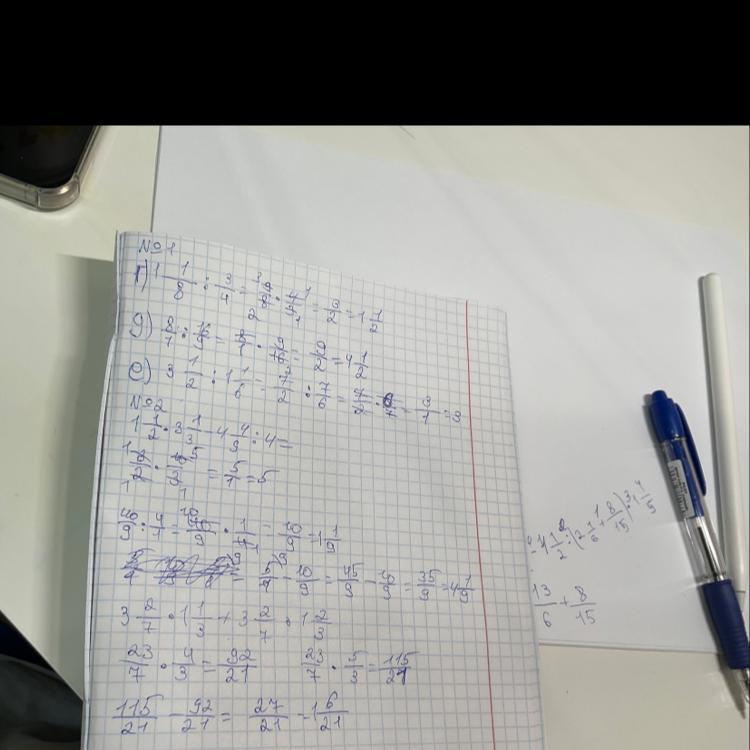 №1
г) 1 1/8 : 3/4 = 9/8 · 4/3 = 3/2 = 1 1/2
g) 8/1 : 16/9 = 8/1 · 9/16 = 9/2 = 4 1/2
е) 3 1/2 : 1 1/6 = 7/2 : 7/6 = 7/2 · 6/7 = 3/1 = 3
№2
1 1/2 · 3 1/3 - 4 4/9 : 4 =
3/2 · 10/3 = 5/1 = 5
40/9 : 4/1 = 40/9 · 1/4 = 10/9 = 1 1/9
= 5/1 - 10/9 = 45/9 - 10/9 = 35/9 =
3 2/7 · 1 1/3 + 3 2/7 · 1 2/3
23/7 · 4/3 = 92/21 23/7 · 5/3 = 115/21
115/21 - 92/21 = 27/21 = 1 6/21
4 1/2 : (2 1/6 + 8/15)
13/6 + 8/15